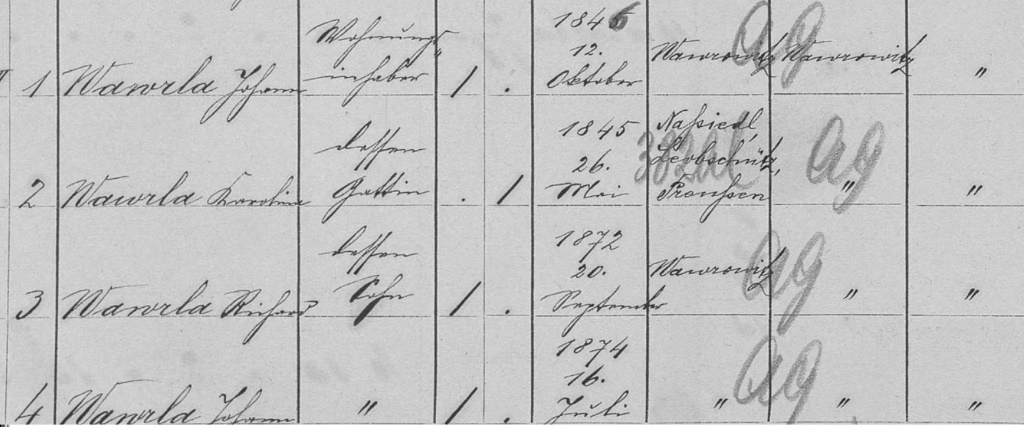 1846
Wohnungs-
12.
Wawrowitz Wawrowitz
1 Wawrla Johann inhaber 1 . Oktober "
1845 Naßiedl,
dessen
26. Leobschütz,
2 Wawrla Karolina Gattin . 1 Mai Preußen " "
1872
dessen
20. Wawrowitz
3 Wawrla Richard Sohn 1 . September " "
1874
16.
4 Wawrla Johann " 1 . Juli " " "